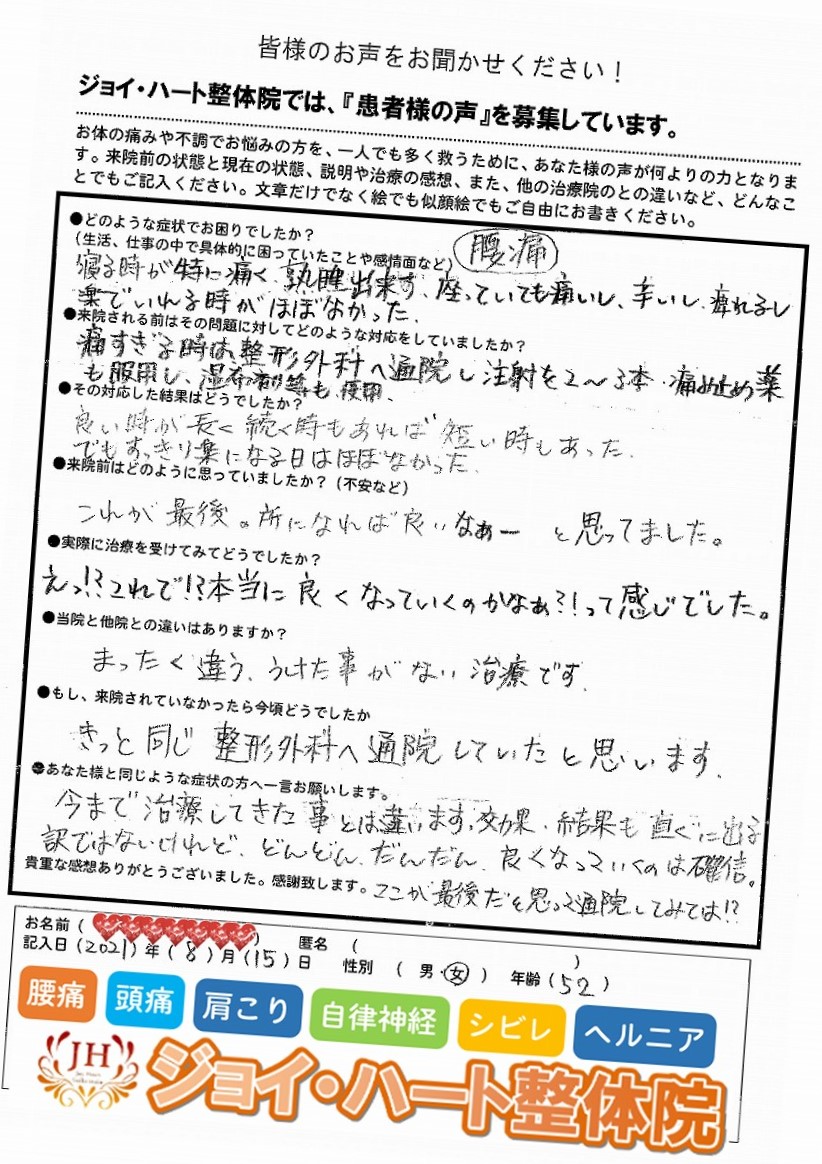 皆様のお声をお聞かせください！
ジョイ・ハート整体院では、『患者様の声』を募集しています。
お体の痛みや不調でお悩みの方を、一人でも多く救うために、あなた様の声が何よりの力となりま
す。来院前の状態と現在の状態、説明や治療の感想、また、他の治療院のとの違いなど、どんなこ
とでもご記入ください。文章だけでなく絵でも似顔絵でもご自由にお書きください。
●どのような症状でお困りでしたか？
（生活、仕事の中で具体的に困っていたことや感情面など） 腰痛
寝る時が特に痛く、熟睡出来ず、座っていても痛いし、辛いし、痺れるし
楽でいれる時がほぼなかった.
●来院される前はその問題に対してどのような対応をしていましたか？
痛すぎる時は、整形外科へ通院し注射を2〜3本、痛め止め薬
も服用し、湿布剤等も使用、
●その対応した結果はどうでしたか？
良い時が長く続く時もあれば短い時もあった.
でもすっきり楽になる日はほぼなかった.
●来院前はどのように思っていましたか？（不安など）
これが最後。所になれば良いなぁー と思ってました。
●実際に治療を受けてみてどうでしたか？
えっ!?これで!?本当に良くなっていくのかなぁ?!って感じでした。
●当院と他院との違いはありますか？
まったく違う、うけた事がない治療です.
●もし、来院されていなかったら今頃どうでしたか
きっと同じ整形外科へ通院していたと思います.
●あなた様と同じような症状の方へ一言お願いします。
今まで治療してきた事とは違います。効果、結果も直ぐに出る
訳ではないけれど、どんどん、だんだん、良くなっていくのは確信。
貴重な感想ありがとうございました。感謝致します。 ここが最後だと思って通院してみては!?
お名前 ( ) 匿名 ( )
記入日 (2021) 年 ( 8 ) 月 (15) 日 性別 ( 男・女 ) 年齢 (52)
腰痛 頭痛 肩こり 自律神経 シビレ ヘルニア
JH
ジョイ・ハート整体院